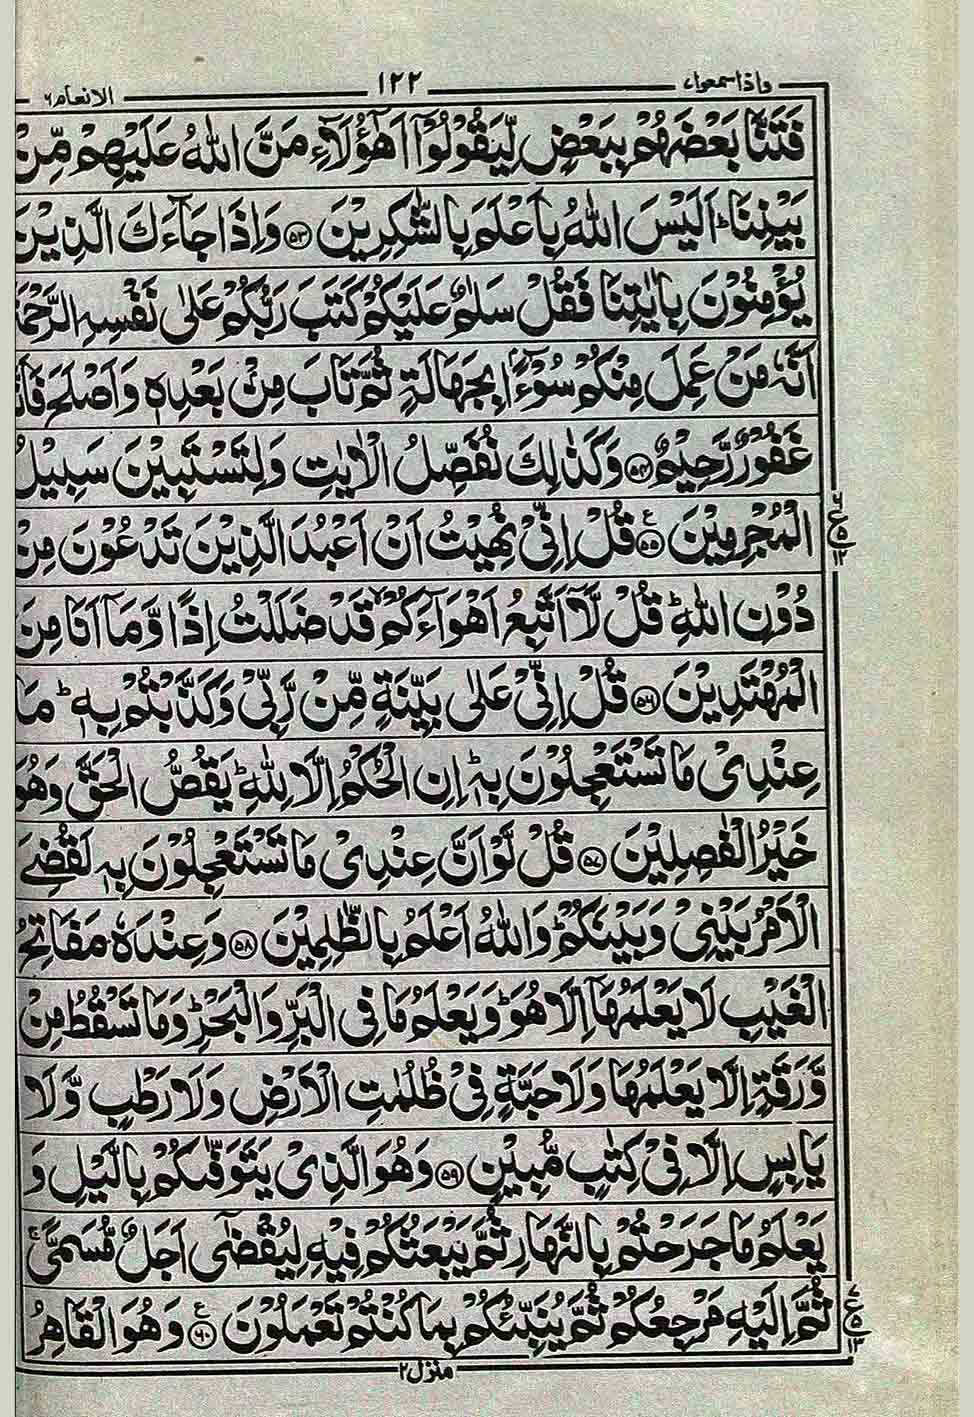 واذا سمعوا ٧ ١٢٢ الانعام ٦
فَتَنَّا بَعْضَهُمْ بِبَعْضٍ لِّيَقُوْلُوْٓا اَهٰٓؤُلَآءِ مَنَّ اللّٰهُ عَلَيْهِمْ مِّنْۢ
بَيْنِنَا ؕ اَلَيْسَ اللّٰهُ بِاَعْلَمَ بِالشّٰكِرِيْنَ ﴿۵۳﴾ وَاِذَا جَآءَكَ الَّذِيْنَ
يُؤْمِنُوْنَ بِاٰيٰتِنَا فَقُلْ سَلٰمٌ عَلَيْكُمْ كَتَبَ رَبُّكُمْ عَلٰى نَفْسِهِ الرَّحْمَةَ
اَنَّهٗ مَنْ عَمِلَ مِنْكُمْ سُوْٓءًۢا بِجَهَالَةٍ ثُمَّ تَابَ مِنْۢ بَعْدِهٖ وَاَصْلَحَ فَاَنَّهٗ
غَفُوْرٌ رَّحِيْمٌ ﴿۵۴﴾ وَكَذٰلِكَ نُفَصِّلُ الْاٰيٰتِ وَلِتَسْتَبِيْنَ سَبِيْلُ
الْمُجْرِمِيْنَ ﴿۵۵﴾ ع قُلْ اِنِّيْ نُهِيْتُ اَنْ اَعْبُدَ الَّذِيْنَ تَدْعُوْنَ مِنْ
دُوْنِ اللّٰهِ ؕ قُلْ لَّآ اَتَّبِعُ اَهْوَآءَكُمْ ۙ قَدْ ضَلَلْتُ اِذًا وَّمَآ اَنَا مِنَ
الْمُهْتَدِيْنَ ﴿۵۶﴾ قُلْ اِنِّيْ عَلٰى بَيِّنَةٍ مِّنْ رَّبِّيْ وَكَذَّبْتُمْ بِهٖ ؕ مَا
عِنْدِيْ مَا تَسْتَعْجِلُوْنَ بِهٖ ؕ اِنِ الْحُكْمُ اِلَّا لِلّٰهِ ؕ يَقُصُّ الْحَقَّ وَهُوَ
خَيْرُ الْفٰصِلِيْنَ ﴿۵۷﴾ قُلْ لَّوْ اَنَّ عِنْدِيْ مَا تَسْتَعْجِلُوْنَ بِهٖ لَقُضِيَ
الْاَمْرُ بَيْنِيْ وَبَيْنَكُمْ ؕ وَاللّٰهُ اَعْلَمُ بِالظّٰلِمِيْنَ ﴿۵۸﴾ وَعِنْدَهٗ مَفَاتِحُ
الْغَيْبِ لَا يَعْلَمُهَآ اِلَّا هُوَ ؕ وَيَعْلَمُ مَا فِي الْبَرِّ وَالْبَحْرِ ؕ وَمَا تَسْقُطُ مِنْ
وَّرَقَةٍ اِلَّا يَعْلَمُهَا وَلَا حَبَّةٍ فِيْ ظُلُمٰتِ الْاَرْضِ وَلَا رَطْبٍ وَّلَا
يَابِسٍ اِلَّا فِيْ كِتٰبٍ مُّبِيْنٍ ﴿۵۹﴾ وَهُوَ الَّذِيْ يَتَوَفّٰىكُمْ بِالَّيْلِ وَ
يَعْلَمُ مَا جَرَحْتُمْ بِالنَّهَارِ ثُمَّ يَبْعَثُكُمْ فِيْهِ لِيُقْضٰٓى اَجَلٌ مُّسَمًّى ۚ
ثُمَّ اِلَيْهِ مَرْجِعُكُمْ ثُمَّ يُنَبِّئُكُمْ بِمَا كُنْتُمْ تَعْمَلُوْنَ ﴿۶۰﴾ ع وَهُوَ الْقَاهِرُ
منزل ٢